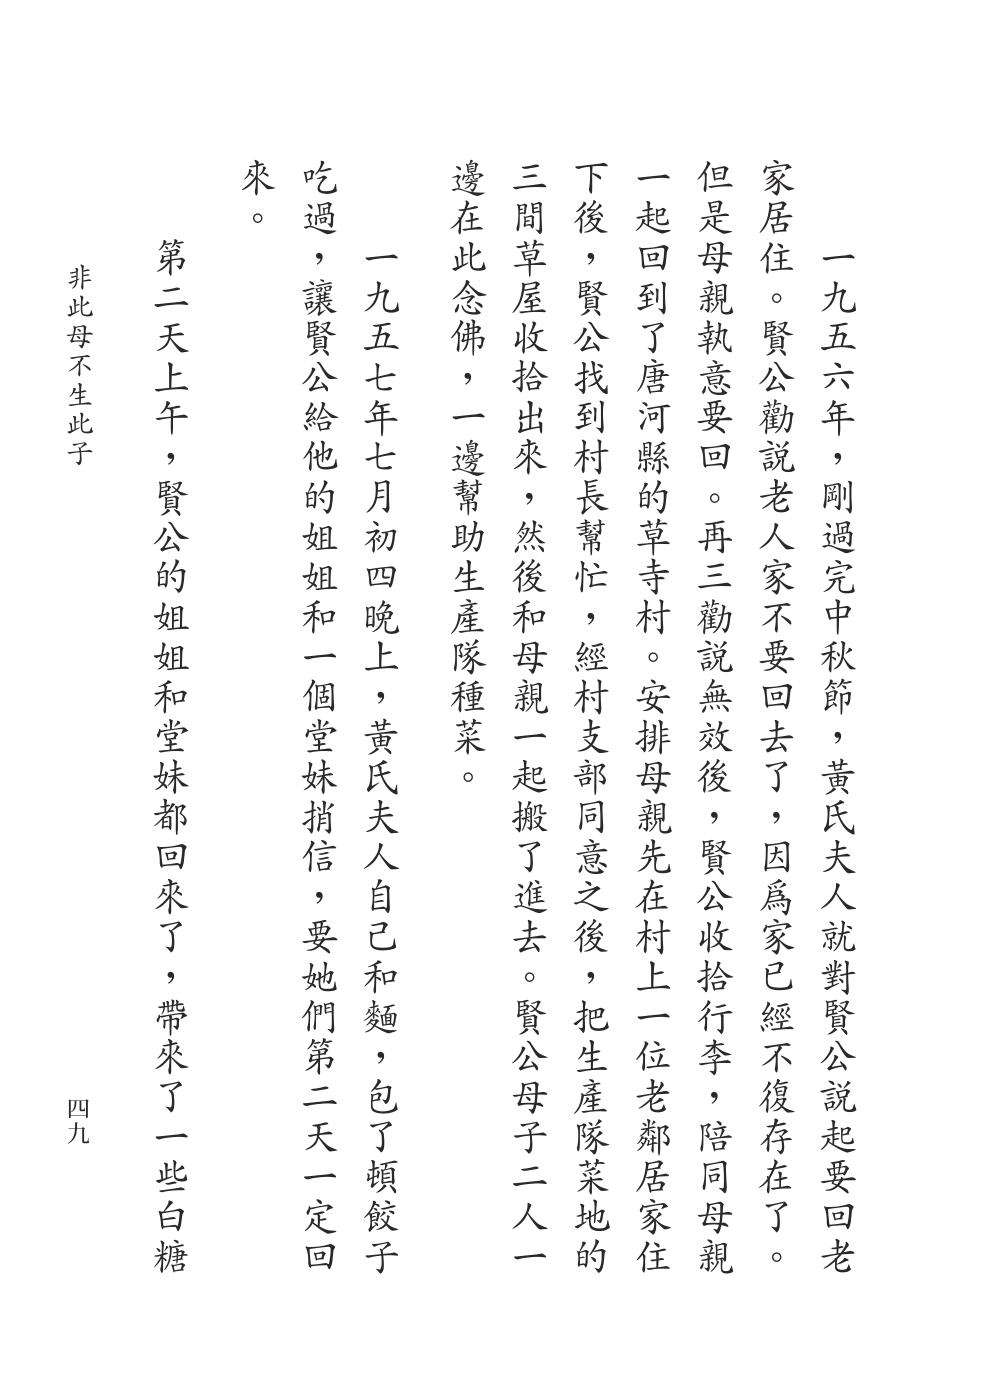 一九五六年，剛過完中秋節，黃氏夫人就對賢公説起要回老
家居住。賢公勸説老人家不要回去了，因爲家已經不復存在了。
但是母親執意要回。再三勸説無效後，賢公收拾行李，陪同母親
一起回到了唐河縣的草寺村。安排母親先在村上一位老鄰居家住
下後，賢公找到村長幫忙，經村支部同意之後，把生產隊菜地的
三間草屋收拾出來，然後和母親一起搬了進去。賢公母子二人一
邊在此念佛，一邊幫助生產隊種菜。
一九五七年七月初四晚上，黃氏夫人自己和麵，包了頓餃子
吃過，讓賢公給他的姐姐和一個堂妹捎信，要她們第二天一定回
來。
第二天上午，賢公的姐姐和堂妹都回來了，帶來了一些白糖
非此母不生此子
四九